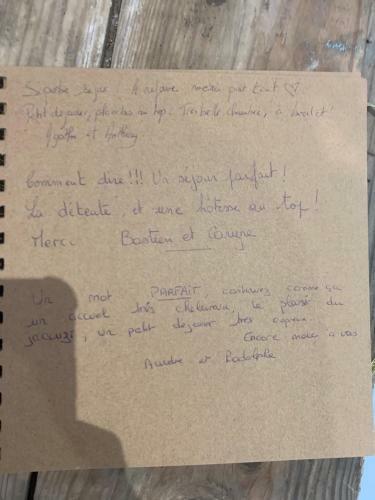 Superbe séjour ! A refaire merci pour tout ♡
Petit dejeuner, planches au top ! Très belle chambre, à bientot !
Agathe et Anthony
Comment dire !!! Un séjour parfait !
La détente, et une hôtesse au top !
Merci Bastien et
Un mot PARFAIT, continuez comme ça
un accueil très chaleureux, le plaisir du
jacuzzi, un petit dejeuner très copieux.
Encore merci a vous
Aurelie et Rodolphe